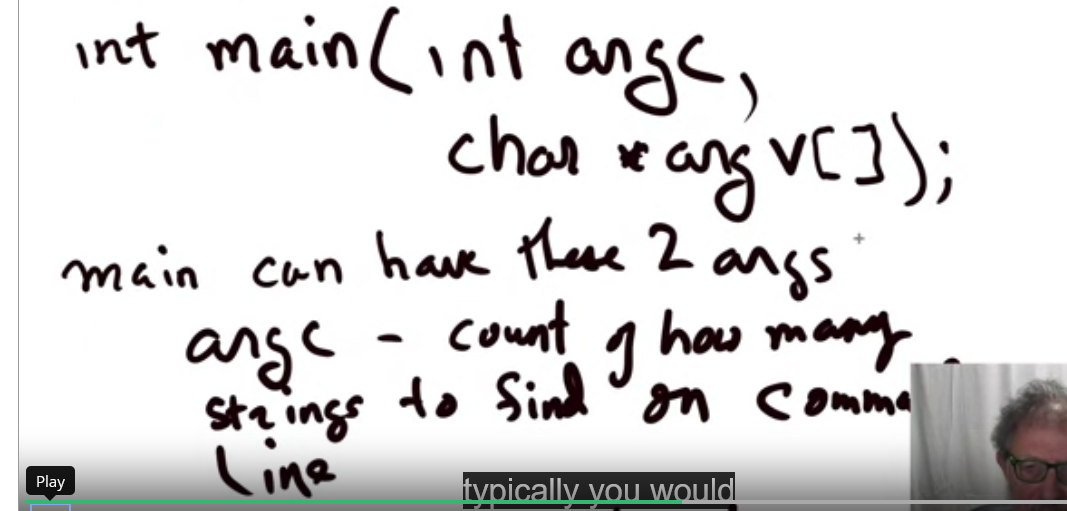 int main(int argc,
char *argv[]);
main can have these 2 args
argc - count of how many
strings to find on comma
line
Play
typically you would